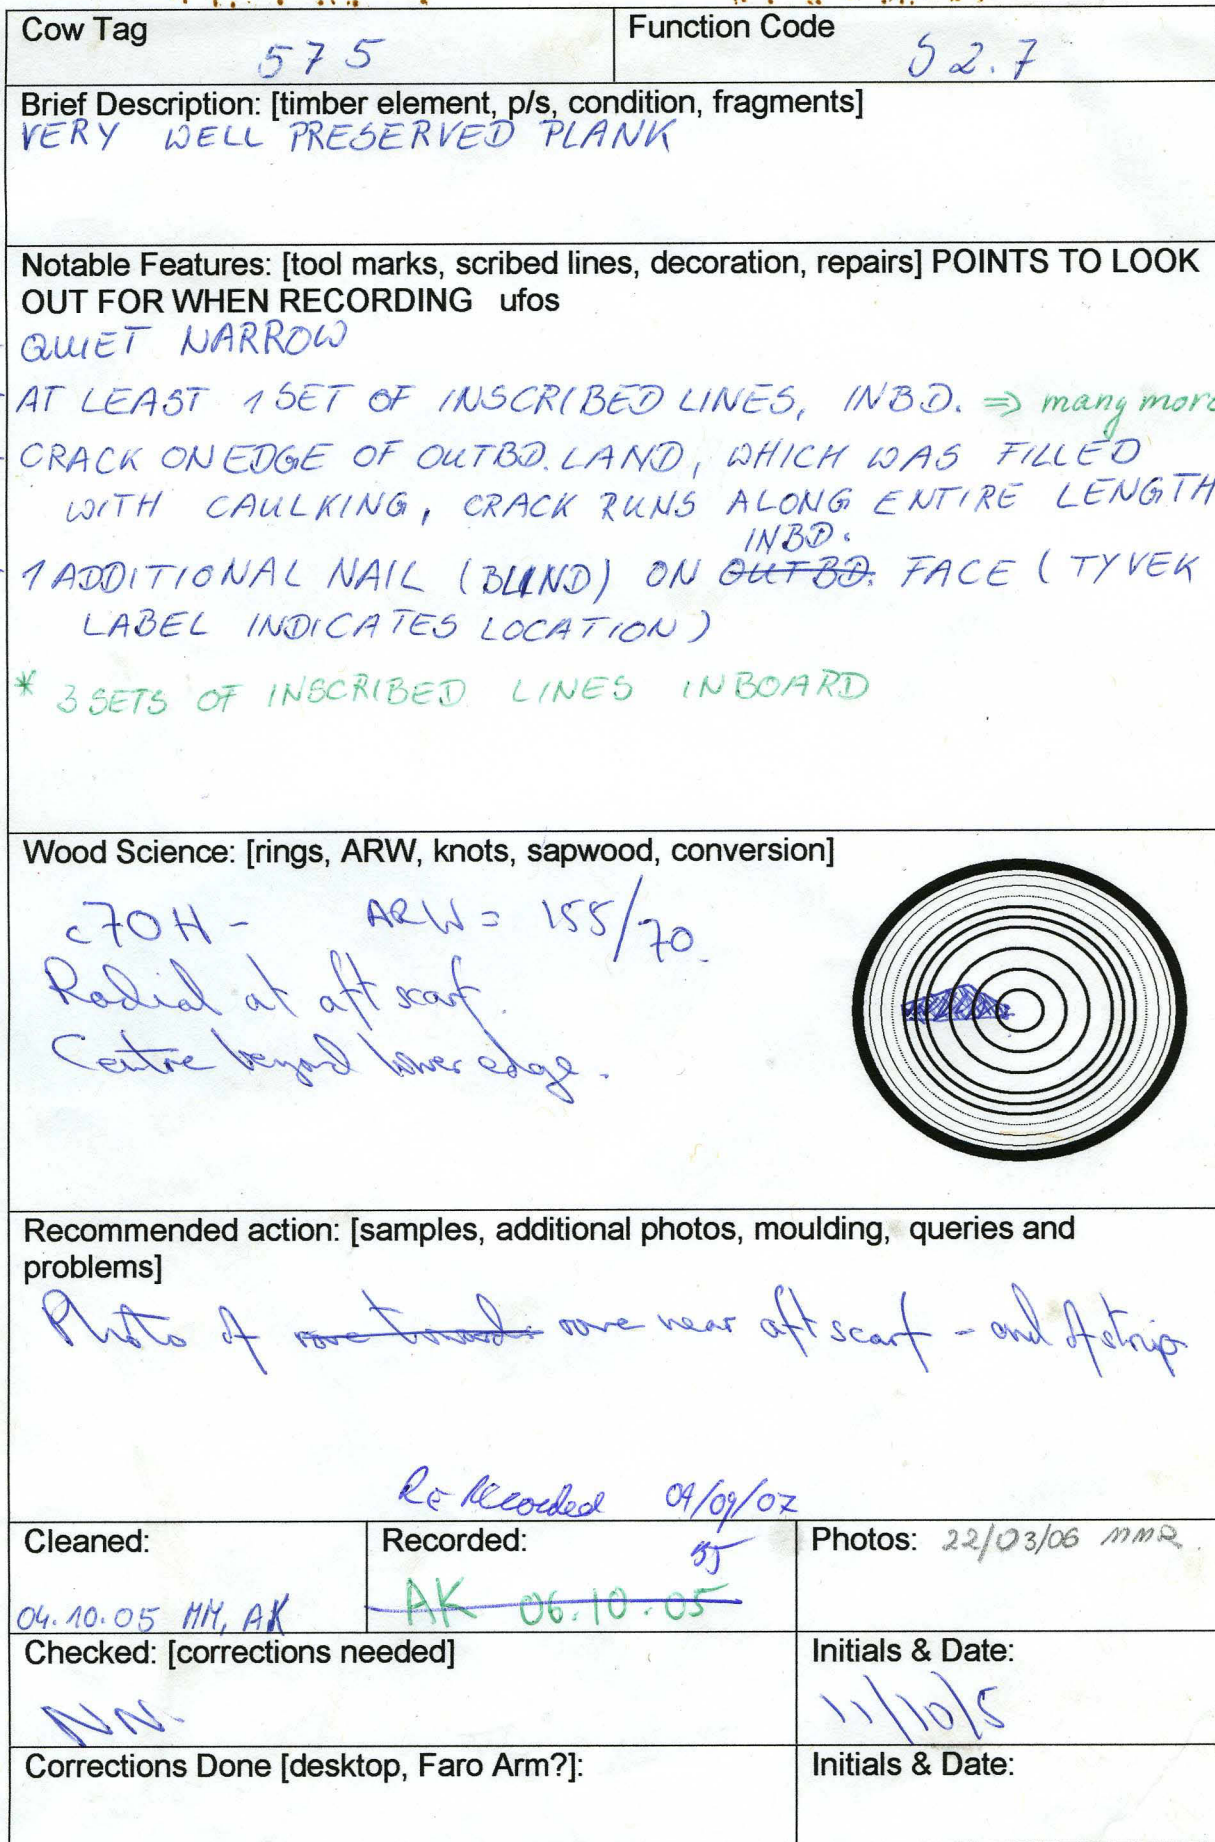 Cow Tag
575
Function Code
S2.7
Brief Description: [timber element, p/s, condition, fragments]
VERY WELL PRESERVED PLANK
Notable Features: [tool marks, scribed lines, decoration, repairs] POINTS TO LOOK
OUT FOR WHEN RECORDING ufos
QUIET NARROW
AT LEAST 1 SET OF INSCRIBED LINES, INBD. ⇒ many more
CRACK ON EDGE OF OUTBD. LAND, WHICH WAS FILLED
WITH CAULKING, CRACK RUNS ALONG ENTIRE LENGTH
INBD.
1 ADDITIONAL NAIL (BLIND) ON OUTBD. FACE (TYVEK
LABEL INDICATES LOCATION)
* 3 SETS OF INSCRIBED LINES INBOARD
Wood Science: [rings, ARW, knots, sapwood, conversion]
c70H - ARW = 155/70.
Radial at aft scarf.
Centre beyond lower edge.
Recommended action: [samples, additional photos, moulding, queries and
problems]
Photo of rove towards rove near aft scarf - end of strip
Re Recorded 09/07
Cleaned:
04.10.05 MM, AK
Recorded:
AK 06.10.05
Photos: 22/03/06 MMR.
Checked: [corrections needed]
NN.
Initials & Date:
11/10/5
Corrections Done [desktop, Faro Arm?]:
Initials & Date: